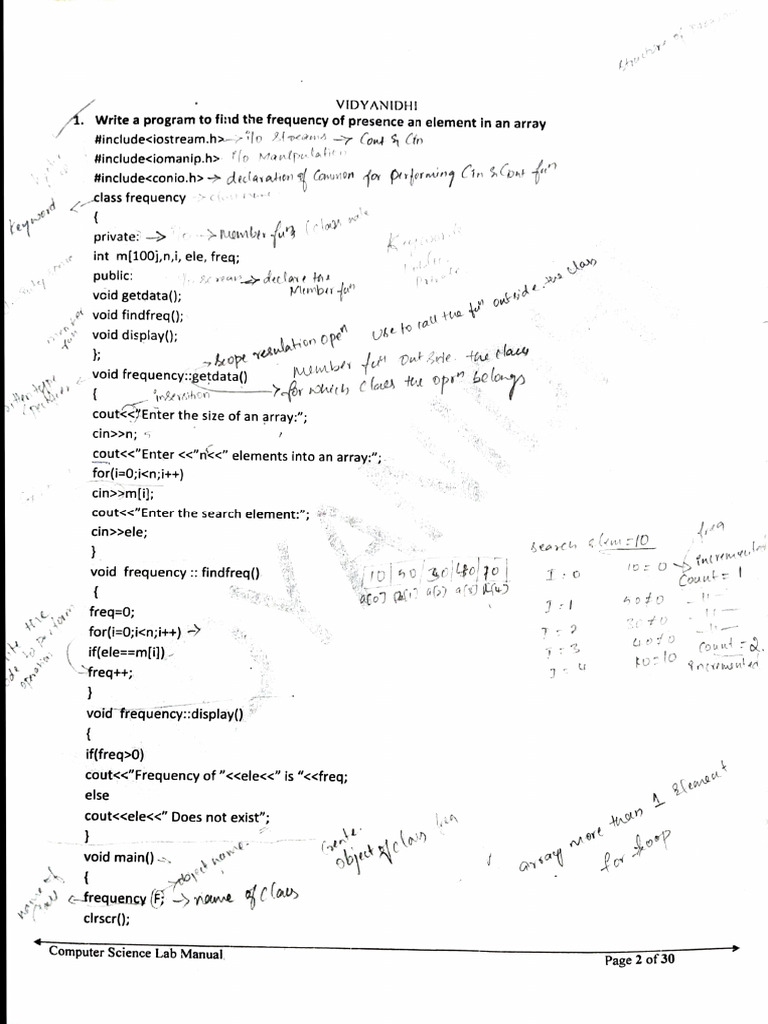 structure of
VIDYANIDHI
1. Write a program to find the frequency of presence an element in an array
#include<iostream.h> → i/o Streams → Cout & Cin
#include<iomanip.h> i/o Manipulation
#include<conio.h> → declaration of Common for performing Cin & Cout fun
class frequency
Keyword
{
private: → Member fun class
int m[100],n,i, ele, freq;
Keywords
Public
Private
public: → declare the
Member fun
void getdata();
void findfreq();
void display();
};
→ Scope resulation open use to call the fun outside the class
void frequency::getdata() Member fun Out Side the class
→ for which class the oprn belongs
{ insertion
cout<<"Enter the size of an array:";
cin>>n;
cout<<"Enter <<"n<<" elements into an array:";
for(i=0;i<n;i++)
cin>>m[i];
cout<<"Enter the search element:";
cin>>ele;
}
search elem=10 freq
void frequency :: findfreq()
10 50 30 40 10
a[0] a[1] a[2] a[3] a[4]
I = 0 10=0 → incremented
Count = 1
I = 1
I = 2
I = 3 40≠0
I = 4 10=10 Count = 2.
incremented
{
freq=0;
for(i=0;i<n;i++) →
if(ele==m[i])
freq++;
}
void frequency::display()
{
if(freq>0)
cout<<"Frequency of "<<ele<<" is "<<freq;
else
cout<<ele<<" Does not exist";
}
void main()
Create
object of class
array more than 1 Element
for loop
{ → object name.
name of class
frequency F; → name of Class
clrscr();
Computer Science Lab Manual
Page 2 of 30